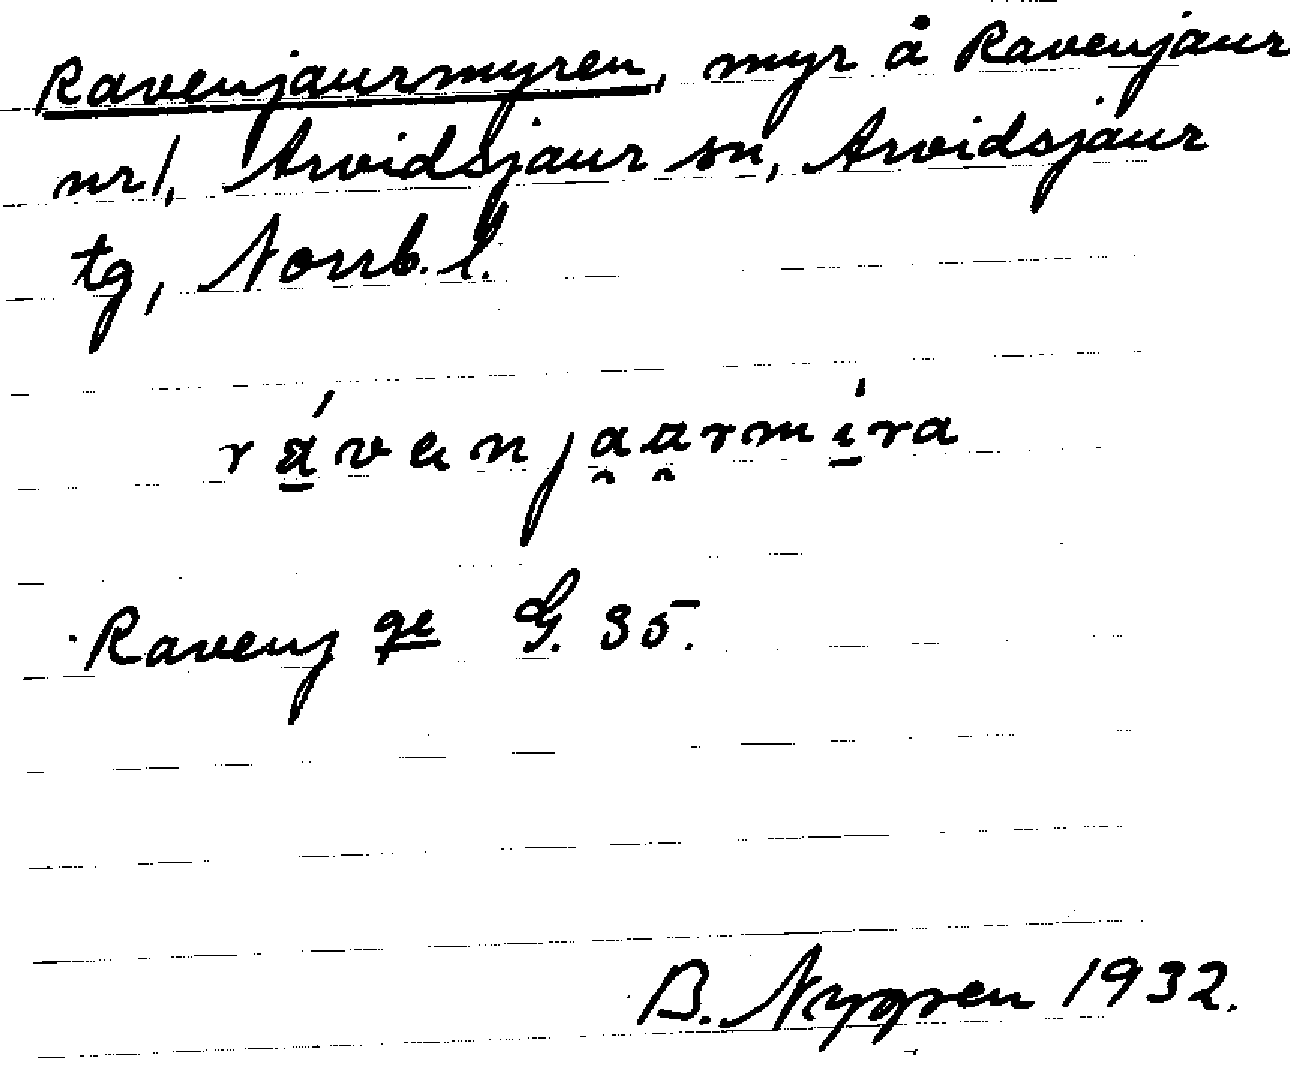 Ravenjaurmyren, myr å Ravenjaur
nr 1, Arvidsjaur sn, Arvidsjaur
tg, Norrb. l.
rávenjaarmíra
Ravenj ge G. 35.
B. Nygren 1932.